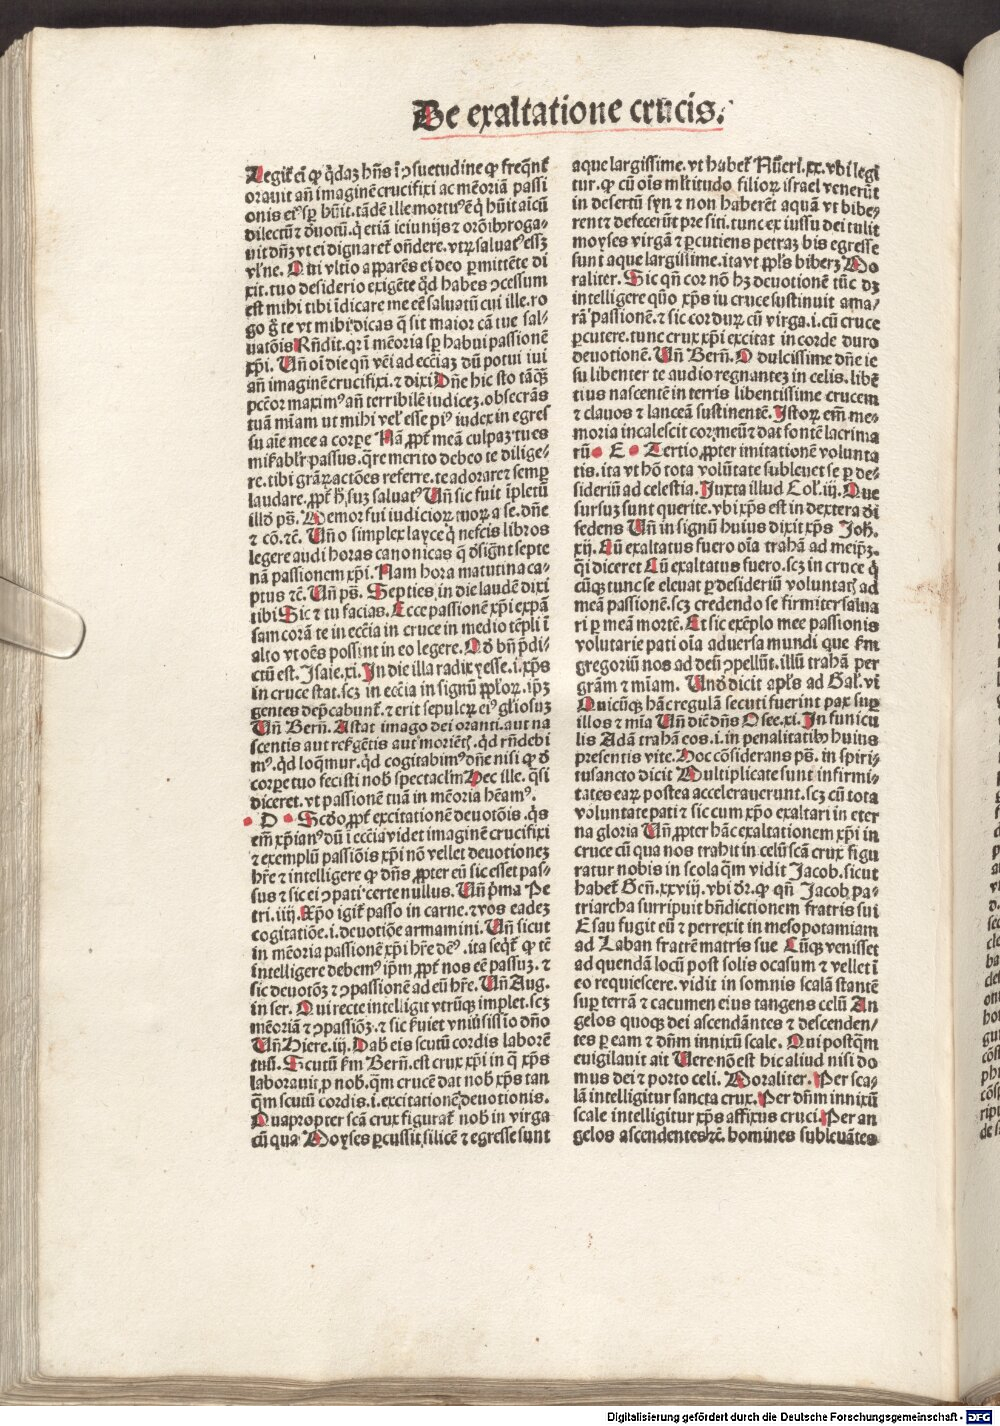 De exaltatione crucis.
Legit̄ eī ꝙ q̇daʒ hn̄s ī ꝯsuetudine ꝙ freq̄nt̄
orauit an̄ imaginē crucifixi ac mēoriā passi
onis eiꝰ sꝑ hūit. tādē ille mortuꝰ ē q̇ hūit aicū
dilectū ⁊ deuotū. q̇ etiā ieiunijs ⁊ orōibꝰ roga-
uit dn̄ʒ vt ei dignaret̄ on̄dere. vtꝝ saluatꝰ essʒ
vl̓ ne. Qui vltio apparēs ei deo ꝑmittēte di
xit. tuo desiderio exigēte qd̓ habes ꝯcessum
est mihi tibi īdicare me eē saluatū cui ille. ro
go g̊ te vt mihi dicas q̄ sit maior cā tue sal-
uatōis Rn̄dit. qꝛ ī mēoria sꝑ habui passionē
xp̄i. Vn̄ oī die qn̄ veī ad eccl̓iaʒ dū potui iui
an̄ imaginē crucifixi. ⁊ dixi Dn̄e hic sto tāq̄ʒ
pctōr maximꝰ an̄ terribilē iudiceʒ. obsecrās
tuā miam ut mihi vel̓ esse piꝰ iudex in egres
su aīe mee a corꝑe Nā ꝓpt̄ meā culpaʒ tu es
mir̄abl̓r passus. qr̄e merito debeo te dilige-
re. tibi grāꝝ actōes referre. te adorare ⁊ semꝑ
laudare. ꝓpt̄ h̓ suʒ saluatꝰ Vn̄ sic fuit īpletū
illd̓ ps̄. Memor fui iudicioꝝ tuoꝝ a se. dn̄e
⁊ cō. ⁊c̄. Vn̄ o simplex layce q̇ nescis libros
legere audi horas canonicas q̄ dsign̄t septe
nā passionem xp̄i. Nam hora matutina ca-
ptus ⁊c̄. Vn̄ ps̄. Septies in die laudē dixi
tibi Sic ⁊ tu facias. Ecce passionē xp̄i expā
sam corā te in eccl̓ia in cruce in medio tēpli ī
alto vt oēs possint in eo legere. Qd̓ bn̄ p̄di-
ctū est. Isaie. xi. In die illa radix yesse. i. xp̄s
in cruce stat. scʒ in eccl̓ia in signū ppl̓oꝝ. ip̄ʒ
gentes dep̄cabunt̄. ⁊ erit sepulcꝝ eiꝰ gl̓iosuʒ
Vn̄ Bern̄. Astat imago dei oranti. aut na
scentis aut
mꝰ. qd̓ loqmur. qd̓ cogitabimꝰ dn̄e nisi ꝙ d̓
corꝑe tuo fecisti nob̓ spectacl̓m Hec ille. q̄si
diceret. vt passionē tuā in mēoria hēamꝰ.
D Scd̓o ꝓpt̄ excitationē deuotōis. q̇s
em̄ xp̄ianꝰ dū ī eccl̓ia videt imaginē crucifixi
⁊ exemplū passiōis xp̄i nō vellet deuotioneʒ
hr̄e ⁊ intelligere ꝙ dn̄s ꝓpter eū sic esset pas-
sus ⁊ sic ei ꝯpati certe nullus. Vn̄ p̓ma Pe
tri. iiij. Xp̄o igit̄ passo in carne. ⁊ vos eadeʒ
cogitatiōe. i. deuotiōe armamini. Vn̄ sicut
in mēoria passionē xp̄i hr̄e dēꝰ. ita seq̄t̄ ꝙ tē
intelligere debemꝰ ip̄m ꝓpt̄ nos eē passuʒ. ⁊
sic deuotōʒ ⁊ ꝯpassionē ad eū hr̄e. Vn̄ Aug.
in ser. Qui recte intelligit vtrūqꝫ implet. scʒ
mēoriā ⁊ ꝯpassiōʒ. ⁊ sic
Vn̄ Hiere. iij. Dab̓ eis scutū cordis laborē
tuū. Scutū ẜm Bern̄. est crux xp̄i in q̄ xp̄s
laborauit ꝓ nob̓. q̄m crucē dat nob̓ xp̄s tan
q̄m scutū cordis. i. excitationē deuotionis.
Quapropter scā crux figurat̄ nob̓ in virga
cū qua Moyses ꝑcussit silicē ⁊ egresse sunt
aque largissime. vt habet̄ Nūeri. xx. vbi legi
tur. ꝙ cū oīs ml̓titudo filioꝝ israel venerūt
in desertū syn ⁊ non haberēt aquā vt bibe-
rent ⁊ defecerūt pre siti. tunc ex iussu dei tulit
moyses virgā ⁊ ꝑcutiens petraʒ bis egresse
sunt aque largissime. ita vt ppl̓s biberʒ Mo
raliter. Sic qn̄ cor nō hʒ deuotionē tūc dʒ
intelligere quō xp̄s in cruce sustinuit ama-
rā passionē. ⁊ sic cor duꝝ cū virga. i. cū cruce
ꝑcutere. tunc crux xp̄i excitat in corde duro
deuotionē. Vn̄ Bern̄. O dulcissime dn̄e ie
su libenter te audio regnanteʒ in celis. libē
tius nascentē in terris libentissime crucem
⁊ clauos ⁊ lanceā sustinentē. Istoꝝ em̄ me-
moria incalescit cor meū ⁊ dat fontē lacrima
rū. E Tertio ꝓpter imitationē volunta
tis. ita vt hō tota volūtate subleuet se ꝑ de-
sideriū ad celestia. Juxta illud Col̓. iij. Que
sursuʒ sunt querite. vbi xp̄s est in dextera dī
sedens Vn̄ in signū huius dixit xp̄s Joh̓.
xij. Cū exaltatus fuero oīa trahā ad meip̄ʒ.
q̓i diceret Cū exaltatus fuero. scʒ in cruce q̇
cūqꝫ tunc se eleuat ꝑ desideriū voluntat̓ ad
meā passionē. scʒ credendo se firmiter salua
ri ꝑ meā mortē. Et sic exēplo mee passionis
volutarie pati oīa aduersa mundi que ẜm
gregoriū nos ad deū ꝯpellūt. illū trahā per
grām ⁊ miam. Vnd̓ dicit apl̓s ad Gal̓. vi
Quicūqꝫ hāc regulā secuti fuerint pax suꝑ
illos ⁊ mīa Vn̄ dic̄ dn̄s Osee. xi. In funicu
lis Adā trahā eos. i. in penalitatibꝰ huius
presentis vite. Hoc cōsiderans ps̄. in spiri-
tusancto dicit Multiplicate sunt infirmi-
tates eaꝝ postea accelerauerunt. scʒ cū tota
voluntate pati ⁊ sic cum xp̄o exaltari in eter
na gloria Vn̄ ꝓpter hāc exaltationem xp̄i in
cruce cū qua nos trahit in celū scā crux figu
ratur nobis in scola q̄m vidit Jacob. sicut
habet̄ Gen̄. xxviij. vbi dr̄. ꝙ qn̄ Jacob pa-
triarcha surripuit bn̄dictionem fratris sui
Esau fugit eū ⁊ perrexit in mesopotamiam
ad Laban fratrē matris sue Cūqꝫ venisset
ad quendā locū post solis ocasum ⁊ vellet ī
eo requiescere. vidit in somnis scalā stantē
suꝑ terrā ⁊ cacumen eius tangens celū An
gelos quoqꝫ dei ascendāntes ⁊ descenden-
tes ꝑ eam ⁊ dn̄m innixū scale. Qui postq̄m
euigilauit ait Vere nō est hic aliud nisi do
mus dei ⁊ porto celi. Moraliter. Per sca-
lā intelligitur sancta crux. Per dn̄m innixū
scale intelligitur xp̄s affixus cruci. Per an
gelos ascendentes ⁊c̄. homines subleuātes
Digitalisierung gefördert durch die Deutsche Forschungsgemeinschaft - DFG